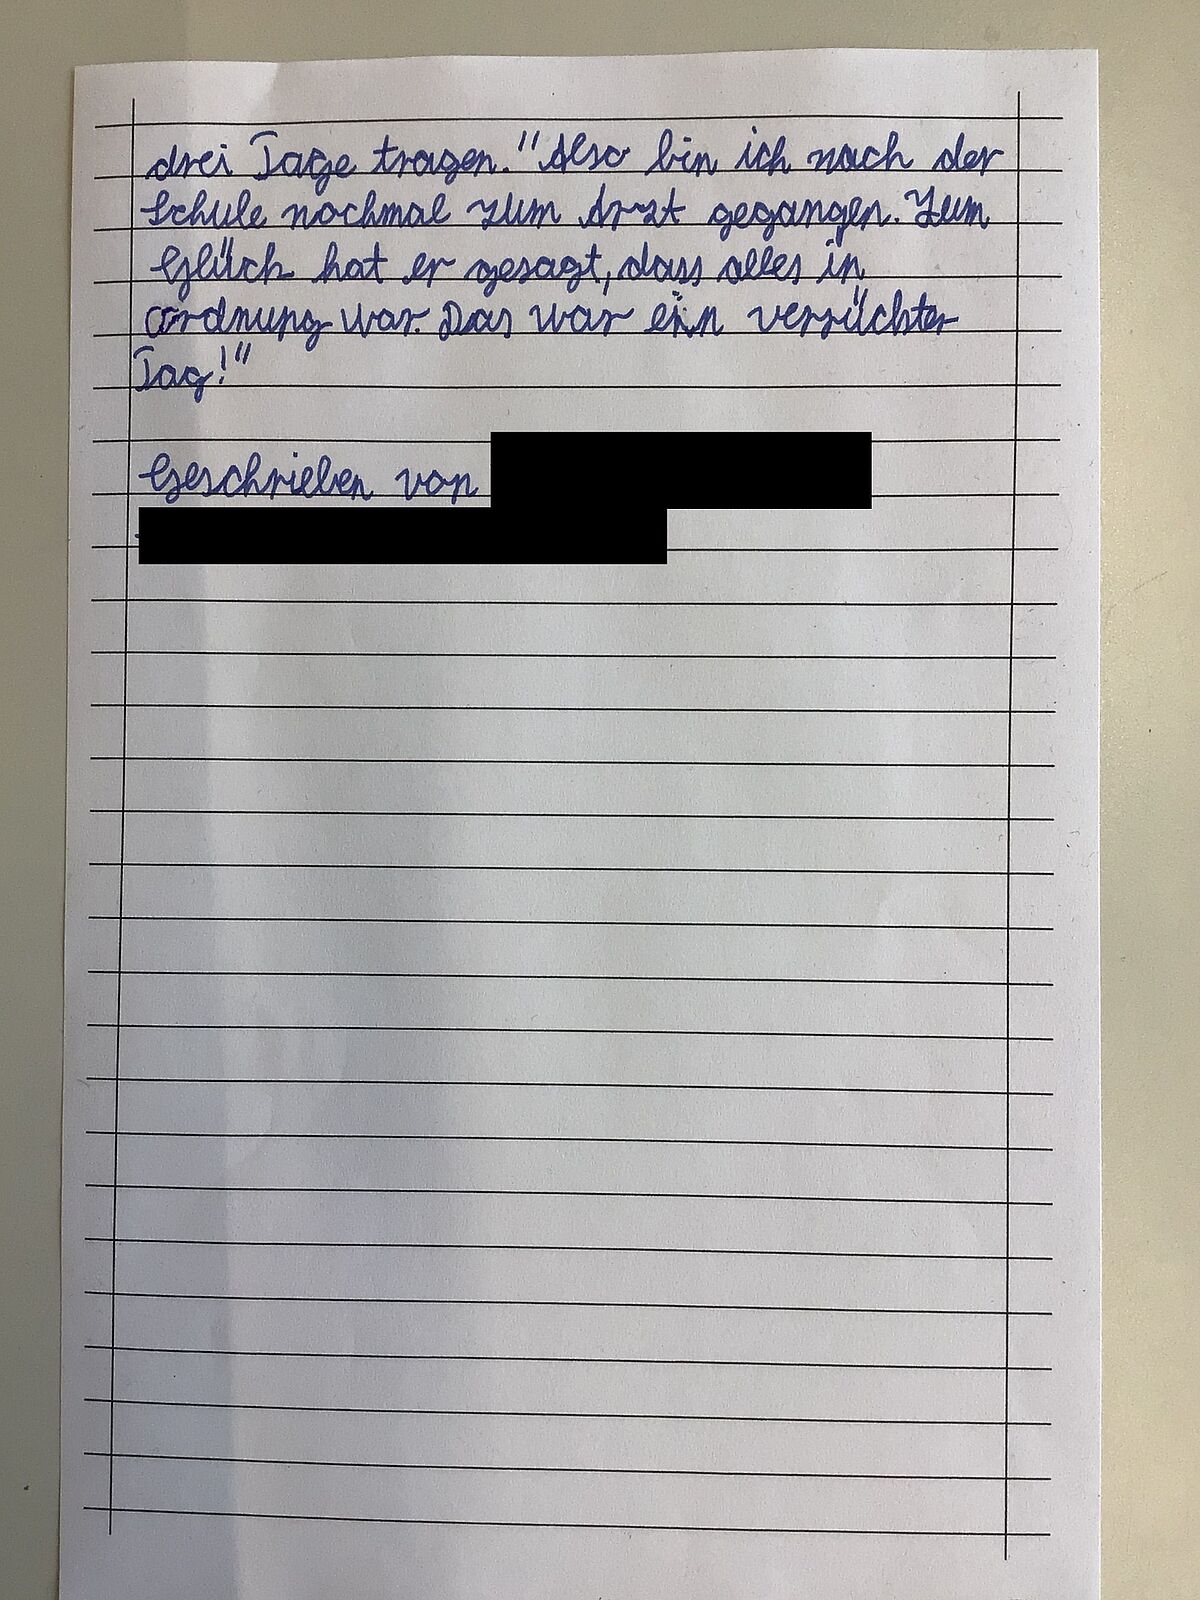 drei Tage tragen." Also bin ich nach der
Schule nochmal zum Arzt gegangen. Zum
Glück hat er gesagt, dass alles in
ordnung war. Das war ein verrückter
Tag!"
Geschrieben von